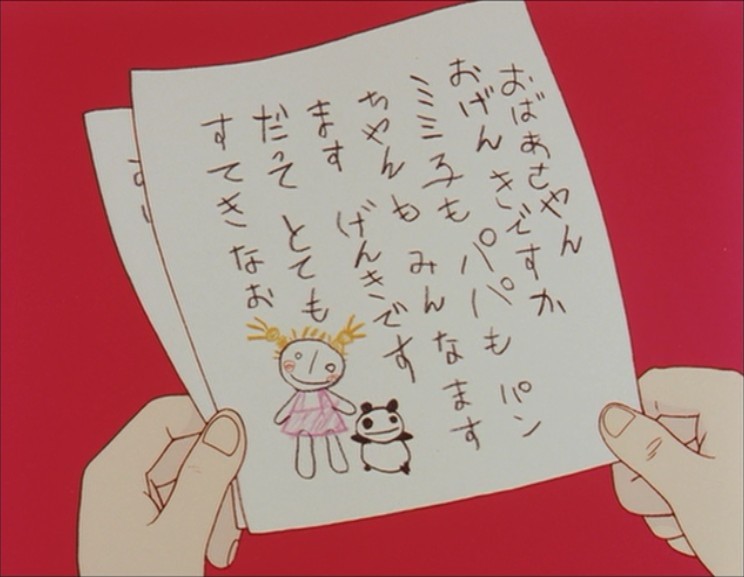 おばあさやん
おげん きですか
ミミ子も パパも パン
ちやん も みんなます
ます げんきです
だって とても
すてきなお